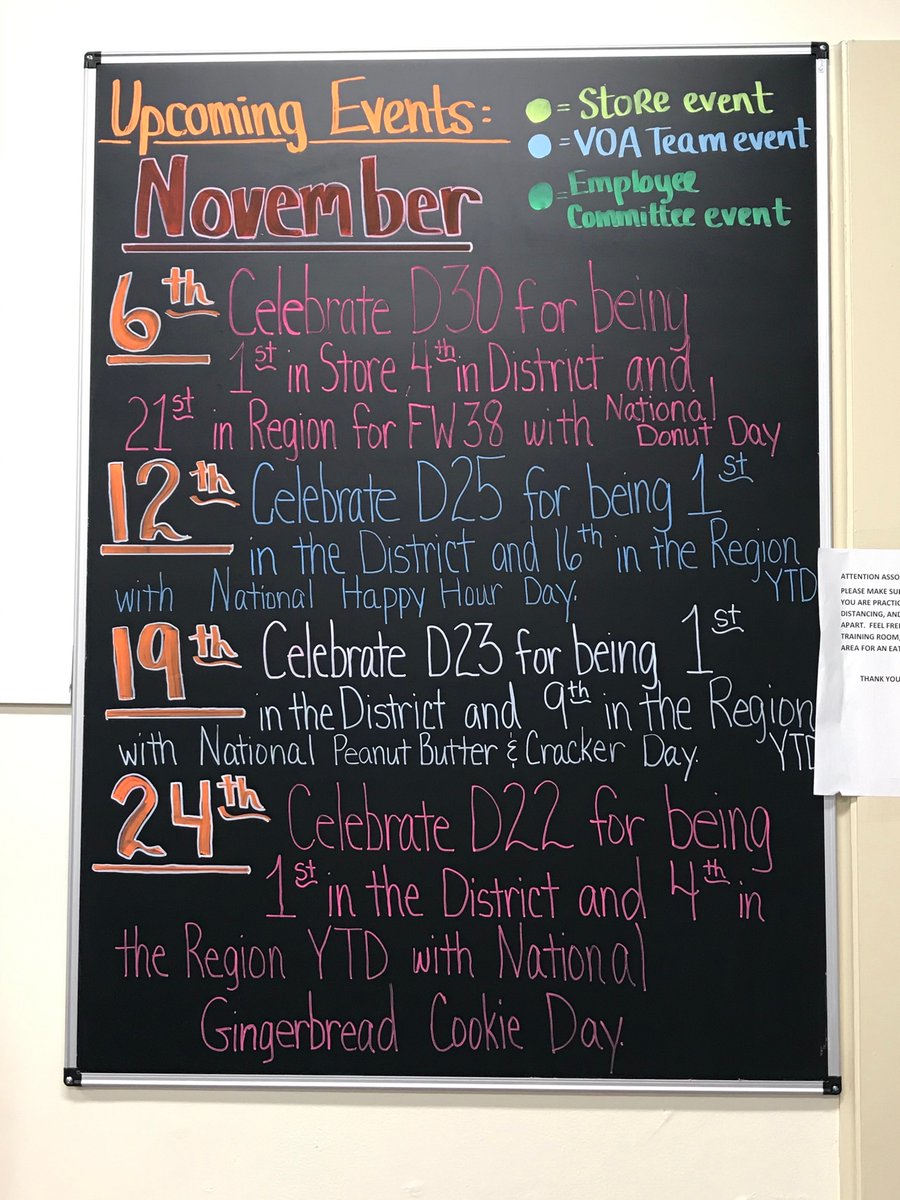 Upcoming Events:
= Store event
= VOA Team event
= Employee
Committee event
November
6th Celebrate D30 for being
1st in Store, 4th in District and
21st in Region for FW38 with National
Donut Day
12th Celebrate D25 for being 1st
in the District and 16th in the Region
YTD
with National Happy Hour Day.
19th Celebrate D23 for being 1st
in the District and 9th in the Region
YTD
with National Peanut Butter & Cracker Day.
24th Celebrate D22 for being
1st in the District and 4th in
the Region YTD with National
Gingerbread Cookie Day.
ATTENTION
PLEASE MAKE
YOU ARE
DISTANCING,
APART. FEEL
TRAINING ROOM,
AREA FOR AN
THANK YOU